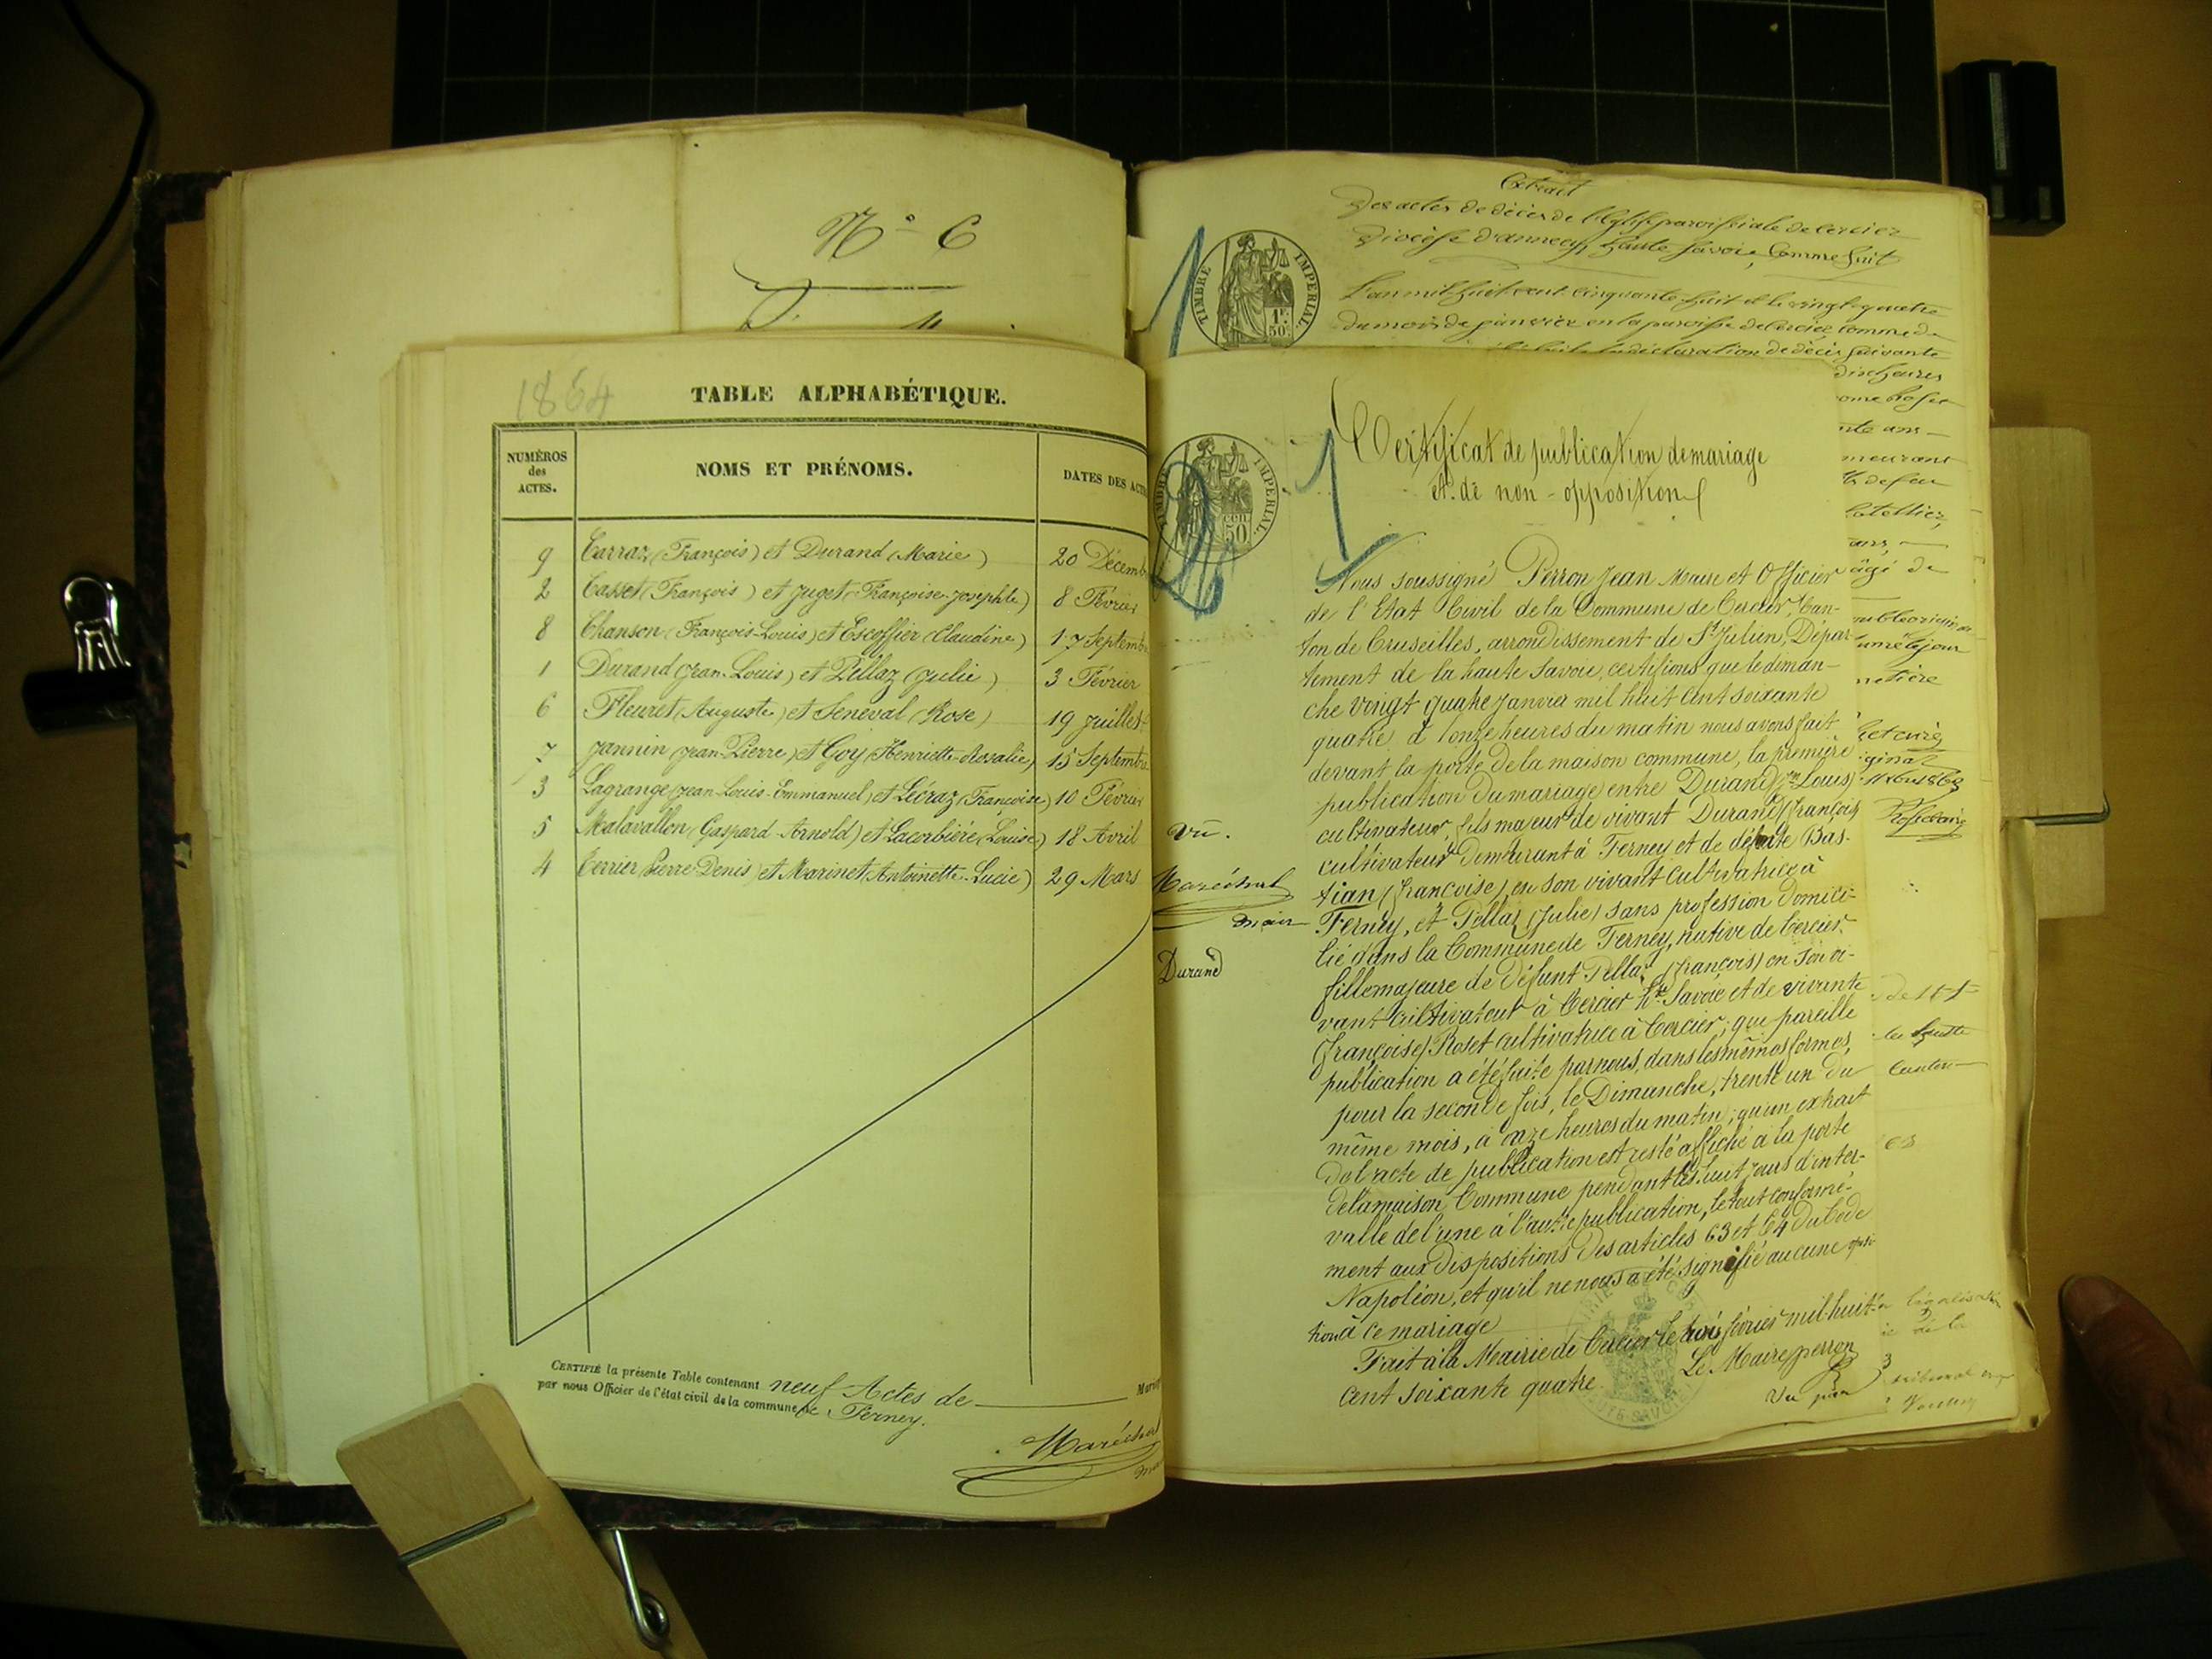 N° 6
1864
TABLE ALPHABÉTIQUE.
NUMÉROS des ACTES.
NOMS ET PRÉNOMS.
DATES DES ACTES
9 Carraz (François) et Durand (Marie) 20 Décemb
2 Casset (François) et Juget (Françoise-Josephte) 8 Février
8 Chanson (François-Louis) et Escoffier (Claudine) 17 Septemb
1 Durand (Jean-Louis) et Pellaz (Julie) 3 Février
6 Fleuret (Auguste) et Seneval (Rose) 19 Juillet
7 Jannin (Jean-Pierre) et Goy (Henriette-Rosalie) 15 Septembre
3 Lagrange (Jean-Louis-Emmanuel) et Lécraz (Françoise) 10 Février
5 Malavallon (Gaspard-Arnold) et Lacorbière (Louise) 18 Avril
4 Terrier (Pierre-Denis) et Marinet (Antoinette-Lucie) 29 Mars
CERTIFIÉ la présente Table contenant neuf Actes de
par nous Officier de l'état civil de la commune de Ferney.
Maréchal
Extrait
Des actes de décès de l'Eglise paroissiale de Cercier
Diocèse d'annecy, haute Savoie, Comme suit
L'an mil huit cent cinquante huit et le vingt quatre
du mois de janvier en la paroisse de Cercier commune de
déclaration de décès suivante
dix heures
TIMBRE IMPERIAL.
1F. 50C.
TIMBRE IMPERIAL.
50 cen
Certificat de publication de mariage
et de non-opposition
Nous soussigné Perron Jean Maire et Officier
de l'Etat Civil de la Commune de Cercier, Can-
ton de Cruseilles, arrondissement de St Julien, Dépar-
tement de la haute Savoie, certifions que le diman-
che vingt quatre Janvier mil huit Cent soixante
quatre à onze heures du matin nous avons fait
devant la porte de la maison commune, la première
publication du mariage entre Durand (Jn Louis)
cultivateur, fils majeur de vivant Durand (François)
cultivateur demeurant à Ferney et de défunte Bas-
tian (Françoise) en son vivant Cultivatrice à
Ferney, et Pellaz (Julie) sans profession domici-
lié dans la Commune de Ferney, native de Cercier,
fille majeure de défunt Pellaz (François) en son vi-
vant cultivateur à Cercier hte Savoie et de vivante
(Françoise) Roset cultivatrice à Cercier; que pareille
publication a été faite par nous, dans les mêmes formes,
pour la seconde fois, le Dimanche, trente un du
même mois, à onze heures du matin; qu'un extrait
de l'acte de publication est resté affiché à la porte
de la maison Commune pendant les huit jours d'inter-
valle de l'une à l'autre publication, le tout conformé-
ment aux dispositions des articles 63 et 64 du Code
Napoléon, et qu'il ne nous a été signifié aucune oppo-
tion à ce mariage
Fait à la Mairie de Cercier le trois février mil huit
cent soixante quatre.
Le Maire, perron
Vu.
Maréchal
maire
Durand